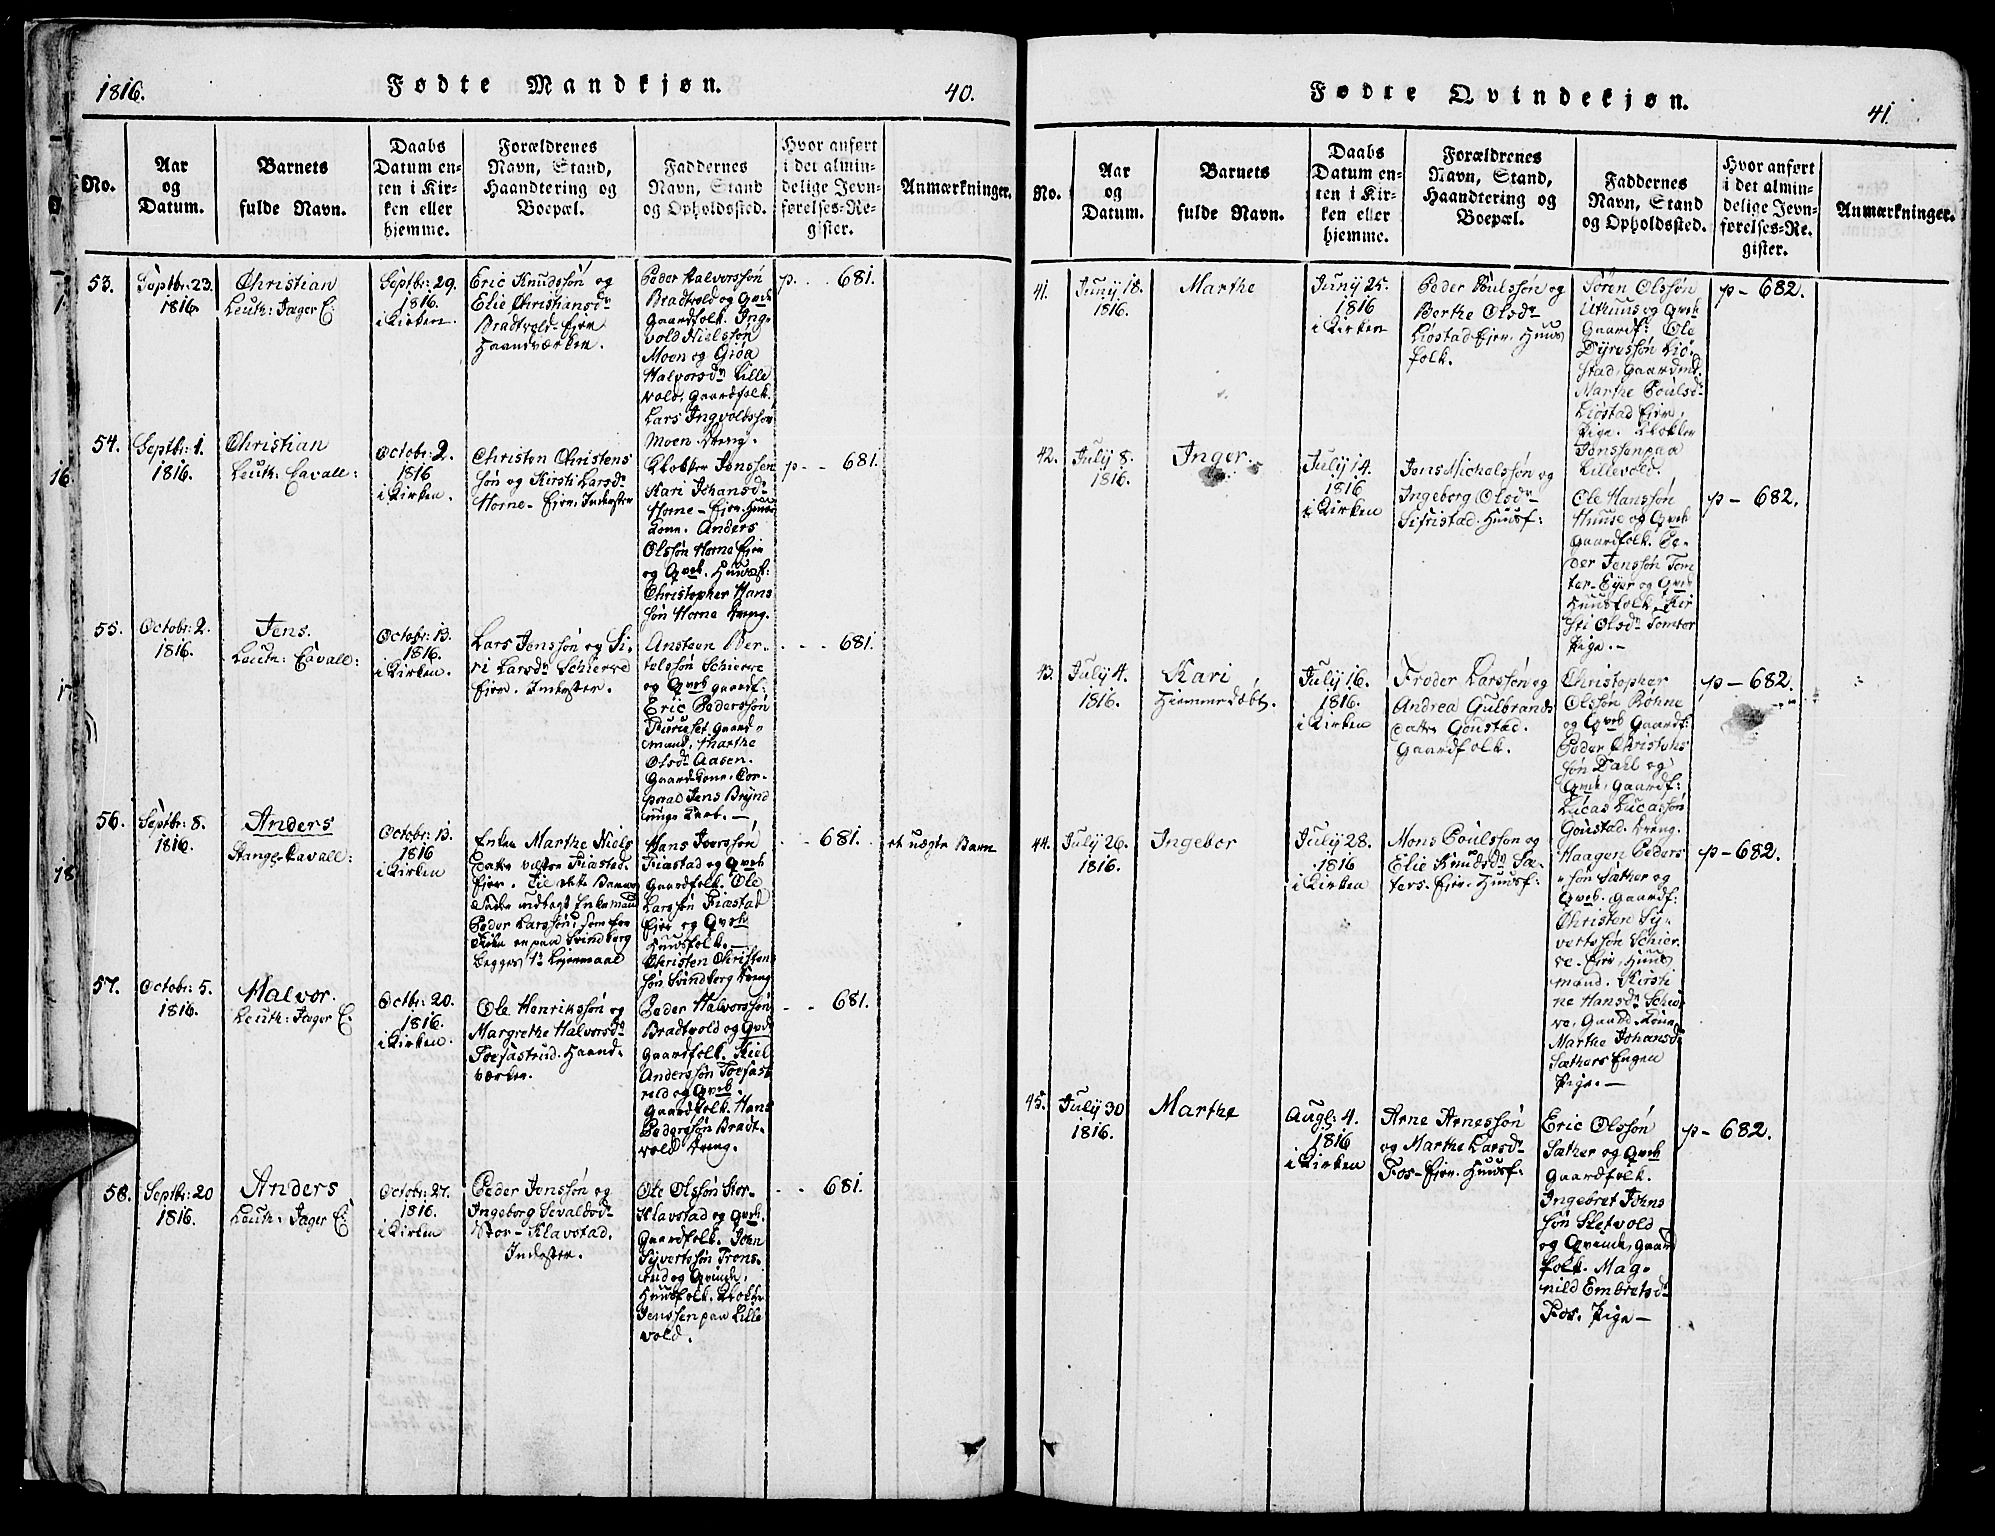 1816.
Fødte Mandkjøn.
40.
No.
Aar
og
Datum.
Barnets
fulde Navn.
Daabs
Datum en-
ten i Kir-
ken eller
hjemme.
Forældrenes
Navn, Stand,
Haandtering og
Boepæl.
Faddernes
Navn, Stand
og Opholdssted.
Hvor anført
i det almin-
delige Jevn-
førelses-Re-
gister.
Anmærkninger.
53.
Septbr: 23.
1816.
Christian
Leuth: Jæger C:
Septbr: 29.
1816.
i Kirken.
Eric Knudssøn og
Elie Christiansdr
Bradtvold Ejer
Haandværker.
Peder Halvorssøn
Bradtvold og Qveb
Gaardfolk. Ing-
vold Nielssøn
Moen og Gida
Halvorsdr Lille
vold, Gaardfolk.
Lars Ingvoldssøn
Moen Dreng.
p. . . 681.
54.
Septbr: 1.
1816.
Christian
Leuth: Cavall:
Octobr: 2.
1816
i Kirken.
Christen Christens
søn og Kirsti Larsdr
Horne - Ejer, Inderster
Klokker Jenssen
Kari Johansdr
Horne - Ejer, Huus
kone. Anders
Olssøn Horne Ejer
og Qveb. Huusf:
Christopher Hans
søn Horne Dreng.
p - - 681.
55.
Octobr: 2.
1816.
Jens.
Leuth: Cavall:
Octobr: 13.
1816.
i Kirken.
Lars Jenssøn og Si-
ri Larsdr Schierve
Ejer. Inderster.
Ansteen Ber-
telssøn Schierve
og Qveb gaardf:
Eric Pederssøn
Furuset Gaard-
mand, Marthe
Olsdr Aasen.
Gaardkone, Cor-
poral Jens Brynd
- - - 681.
56.
Septbr: 8.
1816.
Anders
Stange Cavall:
Octobr: 13.
1816
i Kirken
Enken Marthe Niels
datter Fiæstad
Ejer. Til dette Barns
Fader udlagt Enkemand
Peder Larssøn, som
Svindberg
Begges 1te Leiermaal
Hans Iverssøn
Fiæstad og Qveb
Gaardfolk. Ole
Larssøn Fiæstad
Ejer og Qveb
Huusfolk. -
Christen Christens
søn Svindberg Dreng
- - 681.
et uægte Barn
57.
Octobr: 5.
1816.
Halvor.
Leuth: Jæger C:
Octbr: 20.
1816.
i Kirken.
Ole Henrikssøn og
Margrethe Halvorsdr
Toefastrud. Haand-
værker.
Peder Halvorssøn
Bradtvold og Qveb
Gaardfolk. Kiel
Anderssøn Toefast
rud og Qveb.
Gaardfolk. Hans
Pederssøn Bradt-
vold Dreng.
- - 681.
58.
Septbr: 20
1816.
Anders
Leuth: Jæger C:
Octobr: 27.
1816.
i Kirken
Peder Jenssøn og
Ingeborg Sevaldsdr
Stor-Klavstad.
Inderster.
Ole Olssøn Stor-
Klavstad og Qveb.
Gaardfolk. John
Syvertssøn Trons-
tad og Qvinde.
Huusfolk. Klokker
Jenssen paa Lille
vold.
- - 681.
Fødte Qvindekjøn.
41.
No.
Aar
og
Datum.
Barnets
fulde Navn.
Daabs
Datum en-
ten i Kir-
ken eller
hjemme.
Forældrenes
Navn, Stand,
Haandtering og
Boepæl.
Faddernes
Navn, Stand
og Opholdssted.
Hvor anført
i det almin-
delige Jevn-
førelses-Re-
gister.
Anmærkninger.
41.
Juny 18.
1816.
Marthe
Juny 25.
1816
i Kirken
Peder Poulssøn og
Berthe Olsdr
Liøstad Ejer. Huus
folk.
Søren Olssøn
Uthuus og Qveb
Gaardf: Ole
Dyressøn Liø-
stad, Gaardmd:
Marthe Poulsdr
Liøstad Ejer,
Pige. Klokker
Jenssen paa
Lillevold.
p - 682.
42.
July 8.
1816.
Inger.
July 14.
1816
i Kirken
Jens Michelssøn og
Ingeborg Olsdr
Sifristad. Huusf:
Ole Hanssøn
Huuse og Qveb
Gaardfolk. Pe-
der Jenssøn Tom
ter-Eyer og Qveb
Huusfolk. Kir
sti Olsdr Tomter
Pige. -
p - 682.
43.
July 4.
1816.
Kari
Hiemmedøbt.
July 16.
1816.
i Kirken
Froder Larssøn og
Andrea Gulbrands
datter Goustad.
Gaardfolk.
Christopher
Olssøn Røhne
og Qveb Gaardf:
Peder Christens
søn Dahl og
Qveb, Gaardf:
Lucas Lucassøn
Goustad. Dreng.
p - 682.
44.
July 26.
1816.
Ingebor
July 28.
1816
i Kirken
Mons Poulssøn og
Elie Knudsdr Sæ-
ters. Ejer. Huusf:
Haagen Peders
søn Sæther og
Qveb. Gaardf:
Christen Sy-
vertssøn Schier
ve. Ejer, Huus
mand. Kirsti
ne Hansdr Schier
ve, Gaard Kone
Marthe Johansdr
Sæthers Engen
Pige. -
p - 682.
45.
July 30
1816.
Marthe
Augl: 4.
1816
i Kirken
Arne Arnessøn
og Marthe Larsdr
Fos - Ejer. Huusf:
Eric Olssøn
Sæther og Qveb
Gaardfolk.
Ingebret Johns
søn Sletvold
og Qvinde, Gaard
folk. Mag-
nild Embretsdr
Fos. Pige -
p - 682.